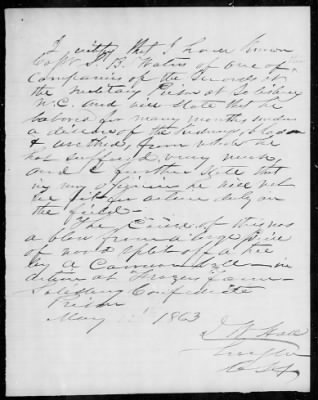 I certify that I have known
Capt J. B. Waters of one of the
Companies of the Guards at
the Military Prison at Salisbury
N.C. and will state that he
labored for many months under
a disease of the kidneys, bladder
& urethra, from which he
has suffered very much
and I further state that
in my opinion he will not
be fit for active duty in
the field —
The cause of this was
a blow from a large piece
of wood split off a tree
by a Cannon ball — in
action at Frazier's Farm —
Salisbury Confederate
Prison
May 1863
J W Hall
Surgeon